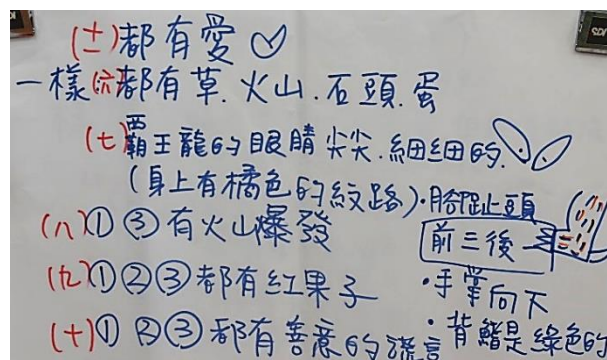 (士)都有愛
一樣(六)都有草.火山.石頭.蛋
(七)霸王龍的眼睛尖尖.細細的.
(身上有橘色的紋路)
・腳趾頭
前三後一
(八)①③有火山爆發
(九)①②③都有紅果子
・手掌向下
(十)①②③都有善意的謊言
・背鰭是綠色的